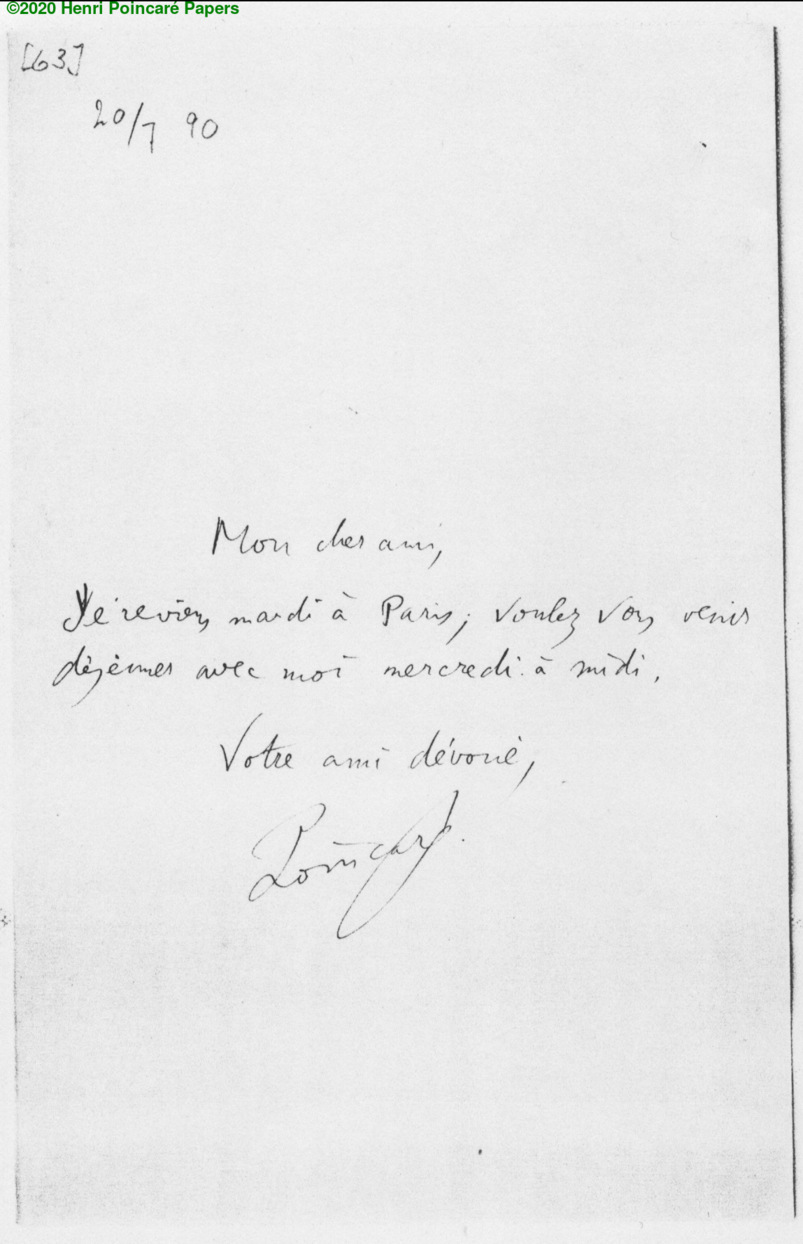 ©2020 Henri Poincaré Papers
[63]
20/7 90
Mon cher ami,
Je reviens mardi à Paris; voulez vous venir
déjeuner avec moi mercredi à midi.
Votre ami dévoué,
Poincaré